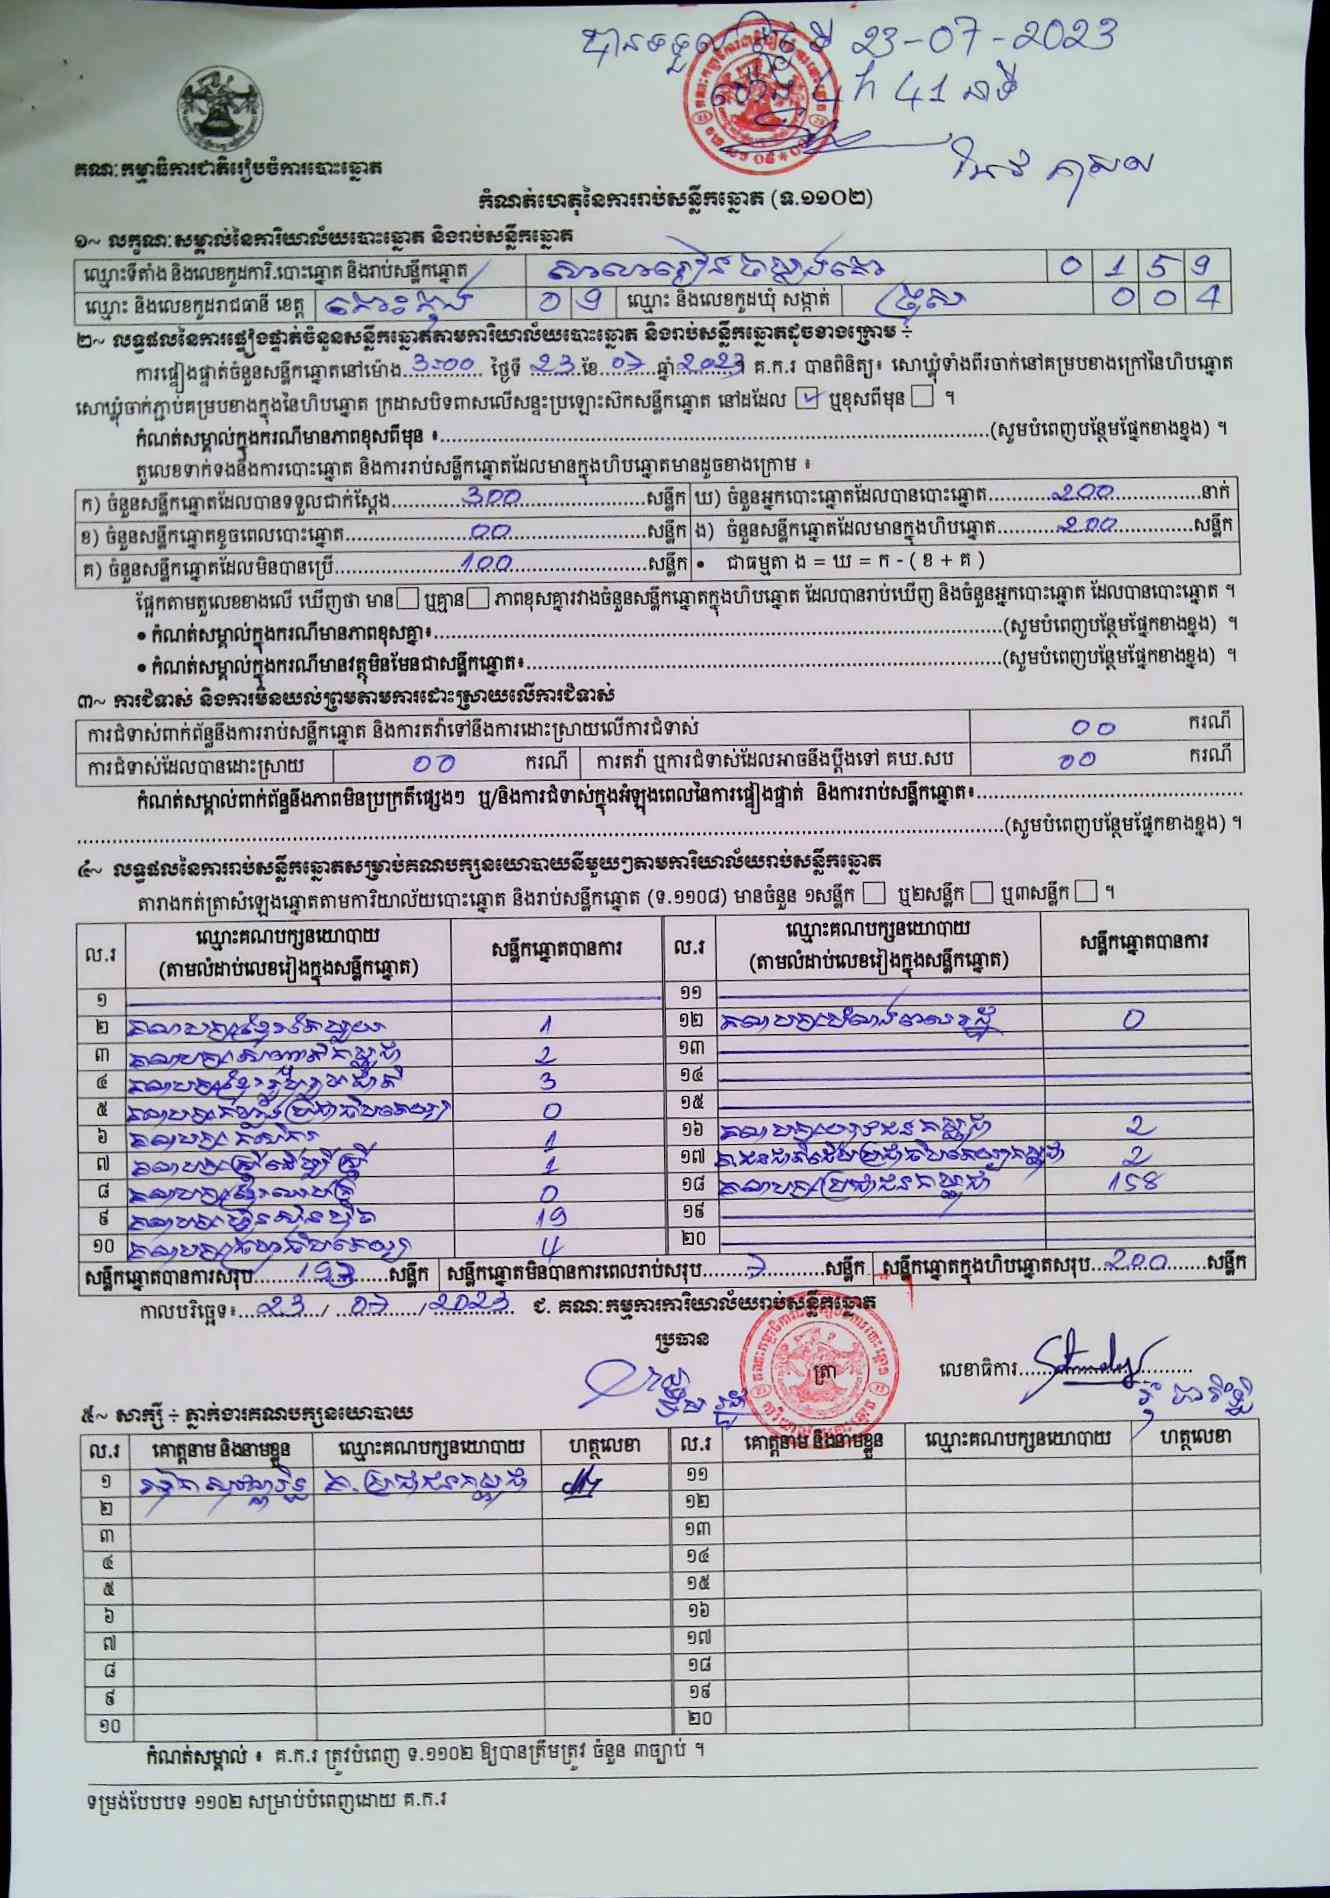 បានទទួល ថ្ងៃទី 23-07-2023
ម៉ោង 4 h 41 នាទី
គណៈកម្មាធិការជាតិរៀបចំការបោះឆ្នោត
កំណត់ហេតុនៃការរាប់សន្លឹកឆ្នោត (ទ.១១០២)
១~ លក្ខណៈសម្គាល់នៃការិយាល័យបោះឆ្នោត និងរាប់សន្លឹកឆ្នោត
ឈ្មោះទីតាំង និងលេខកូដការិ.បោះឆ្នោត និងរាប់សន្លឹកឆ្នោត សាលារៀន 0 1 5 9
ឈ្មោះ និងលេខកូដរាជធានី ខេត្ត កោះកុង 0 9 ឈ្មោះ និងលេខកូដឃុំ សង្កាត់ 0 0 4
២~ លទ្ធផលនៃការផ្ទៀងផ្ទាត់ចំនួនសន្លឹកឆ្នោតតាមការិយាល័យបោះឆ្នោត និងរាប់សន្លឹកឆ្នោតដូចខាងក្រោម ÷
ការផ្ទៀងផ្ទាត់ចំនួនសន្លឹកឆ្នោតនៅម៉ោង 3:00 ថ្ងៃទី 23 ខែ 07 ឆ្នាំ 2023 គ.ក.រ បានពិនិត្យ៖ សោឃ្លុំទាំងពីរចាក់នៅគម្របខាងក្រៅនៃហិបឆ្នោត
សោឃ្លុំចាក់ភ្ជាប់គម្របខាងក្នុងនៃហិបឆ្នោត ក្រដាសបិទពាសលើសន្ទះប្រឡោះស៊កសន្លឹកឆ្នោត នៅដដែល ☑ ឬខុសពីមុន ☐ ។
កំណត់សម្គាល់ក្នុងករណីមានភាពខុសពីមុន ៖ (សូមបំពេញបន្ថែមផ្នែកខាងខ្នង) ។
តួលេខទាក់ទងនឹងការបោះឆ្នោត និងការរាប់សន្លឹកឆ្នោតដែលមានក្នុងហិបឆ្នោតមានដូចខាងក្រោម ៖
ក) ចំនួនសន្លឹកឆ្នោតដែលបានទទួលជាក់ស្តែង 300 សន្លឹក ឃ) ចំនួនអ្នកបោះឆ្នោតដែលបានបោះឆ្នោត 200 នាក់
ខ) ចំនួនសន្លឹកឆ្នោតខូចពេលបោះឆ្នោត 00 សន្លឹក ង) ចំនួនសន្លឹកឆ្នោតដែលមានក្នុងហិបឆ្នោត 200 សន្លឹក
គ) ចំនួនសន្លឹកឆ្នោតដែលមិនបានប្រើ 100 សន្លឹក • ជាធម្មតា ង = ឃ = ក - ( ខ + គ )
ផ្អែកតាមតួលេខខាងលើ ឃើញថា មាន ☐ ឬគ្មាន ☐ ភាពខុសគ្នារវាងចំនួនសន្លឹកឆ្នោតក្នុងហិបឆ្នោត ដែលបានរាប់ឃើញ និងចំនួនអ្នកបោះឆ្នោត ដែលបានបោះឆ្នោត ។
• កំណត់សម្គាល់ក្នុងករណីមានភាពខុសគ្នា៖ (សូមបំពេញបន្ថែមផ្នែកខាងខ្នង) ។
• កំណត់សម្គាល់ក្នុងករណីមានវត្ថុមិនមែនជាសន្លឹកឆ្នោត៖ (សូមបំពេញបន្ថែមផ្នែកខាងខ្នង) ។
៣~ ការជំទាស់ និងការមិនយល់ព្រមតាមការដោះស្រាយលើការជំទាស់
ការជំទាស់ពាក់ព័ន្ធនឹងការរាប់សន្លឹកឆ្នោត និងការតវ៉ាទៅនឹងការដោះស្រាយលើការជំទាស់ 00 ករណី
ការជំទាស់ដែលបានដោះស្រាយ 00 ករណី ការតវ៉ា ឬការជំទាស់ដែលអាចនឹងប្តឹងទៅ គឃ.សប 00 ករណី
កំណត់សម្គាល់ពាក់ព័ន្ធនឹងភាពមិនប្រក្រតីផ្សេងៗ ឬ/និងការជំទាស់ក្នុងអំឡុងពេលនៃការផ្ទៀងផ្ទាត់ និងការរាប់សន្លឹកឆ្នោត៖
(សូមបំពេញបន្ថែមផ្នែកខាងខ្នង) ។
៤~ លទ្ធផលនៃការរាប់សន្លឹកឆ្នោតសម្រាប់គណបក្សនយោបាយនីមួយៗតាមការិយាល័យរាប់សន្លឹកឆ្នោត
តារាងកត់ត្រាសំឡេងឆ្នោតតាមការិយាល័យបោះឆ្នោត និងរាប់សន្លឹកឆ្នោត (ទ.១១០៨) មានចំនួន ១សន្លឹក ☐ ឬ២សន្លឹក ☐ ឬ៣សន្លឹក ☐ ។
ល.រ ឈ្មោះគណបក្សនយោបាយ (តាមលំដាប់លេខរៀងក្នុងសន្លឹកឆ្នោត) សន្លឹកឆ្នោតបានការ ល.រ ឈ្មោះគណបក្សនយោបាយ (តាមលំដាប់លេខរៀងក្នុងសន្លឹកឆ្នោត) សន្លឹកឆ្នោតបានការ
១ ១១
២ គណបក្ស 1 ១២ គណបក្ស 0
៣ គណបក្ស កម្ពុជា 2 ១៣
៤ គណបក្សខ្មែររួបរួមជាតិ 3 ១៤
៥ គណបក្សប្រជាធិបតេយ្យ 0 ១៥
៦ គណបក្សកសិករ 1 ១៦ គណបក្ស កម្ពុជា 2
៧ គណបក្សស្ត្រីដើម្បីស្ត្រី 1 ១៧ 2
៨ គណបក្ស 0 ១៨ គណបក្សប្រជាជនកម្ពុជា 158
៩ គណបក្សហ៊្វុនស៊ិនប៉ិច 19 ១៩
១០ គណបក្ស 4 ២០
សន្លឹកឆ្នោតបានការសរុប 193 សន្លឹក សន្លឹកឆ្នោតមិនបានការពេលរាប់សរុប 7 សន្លឹក សន្លឹកឆ្នោតក្នុងហិបឆ្នោតសរុប 200 សន្លឹក
កាលបរិច្ឆេទ៖ 23 / 07 / 2023 ជ. គណៈកម្មការការិយាល័យរាប់សន្លឹកឆ្នោត
ប្រធាន
ត្រា លេខាធិការ
៥~ សាក្សី ÷ ភ្នាក់ងារគណបក្សនយោបាយ
ល.រ គោត្តនាម និងនាមខ្លួន ឈ្មោះគណបក្សនយោបាយ ហត្ថលេខា ល.រ គោត្តនាម និងនាមខ្លួន ឈ្មោះគណបក្សនយោបាយ ហត្ថលេខា
១ គ.ប្រជាជនកម្ពុជា ១១
២ ១២
៣ ១៣
៤ ១៤
៥ ១៥
៦ ១៦
៧ ១៧
៨ ១៨
៩ ១៩
១០ ២០
កំណត់សម្គាល់ ៖ គ.ក.រ ត្រូវបំពេញ ទ.១១០២ ឱ្យបានត្រឹមត្រូវ ចំនួន ៣ច្បាប់ ។
ទម្រង់បែបបទ ១១០២ សម្រាប់បំពេញដោយ គ.ក.រ